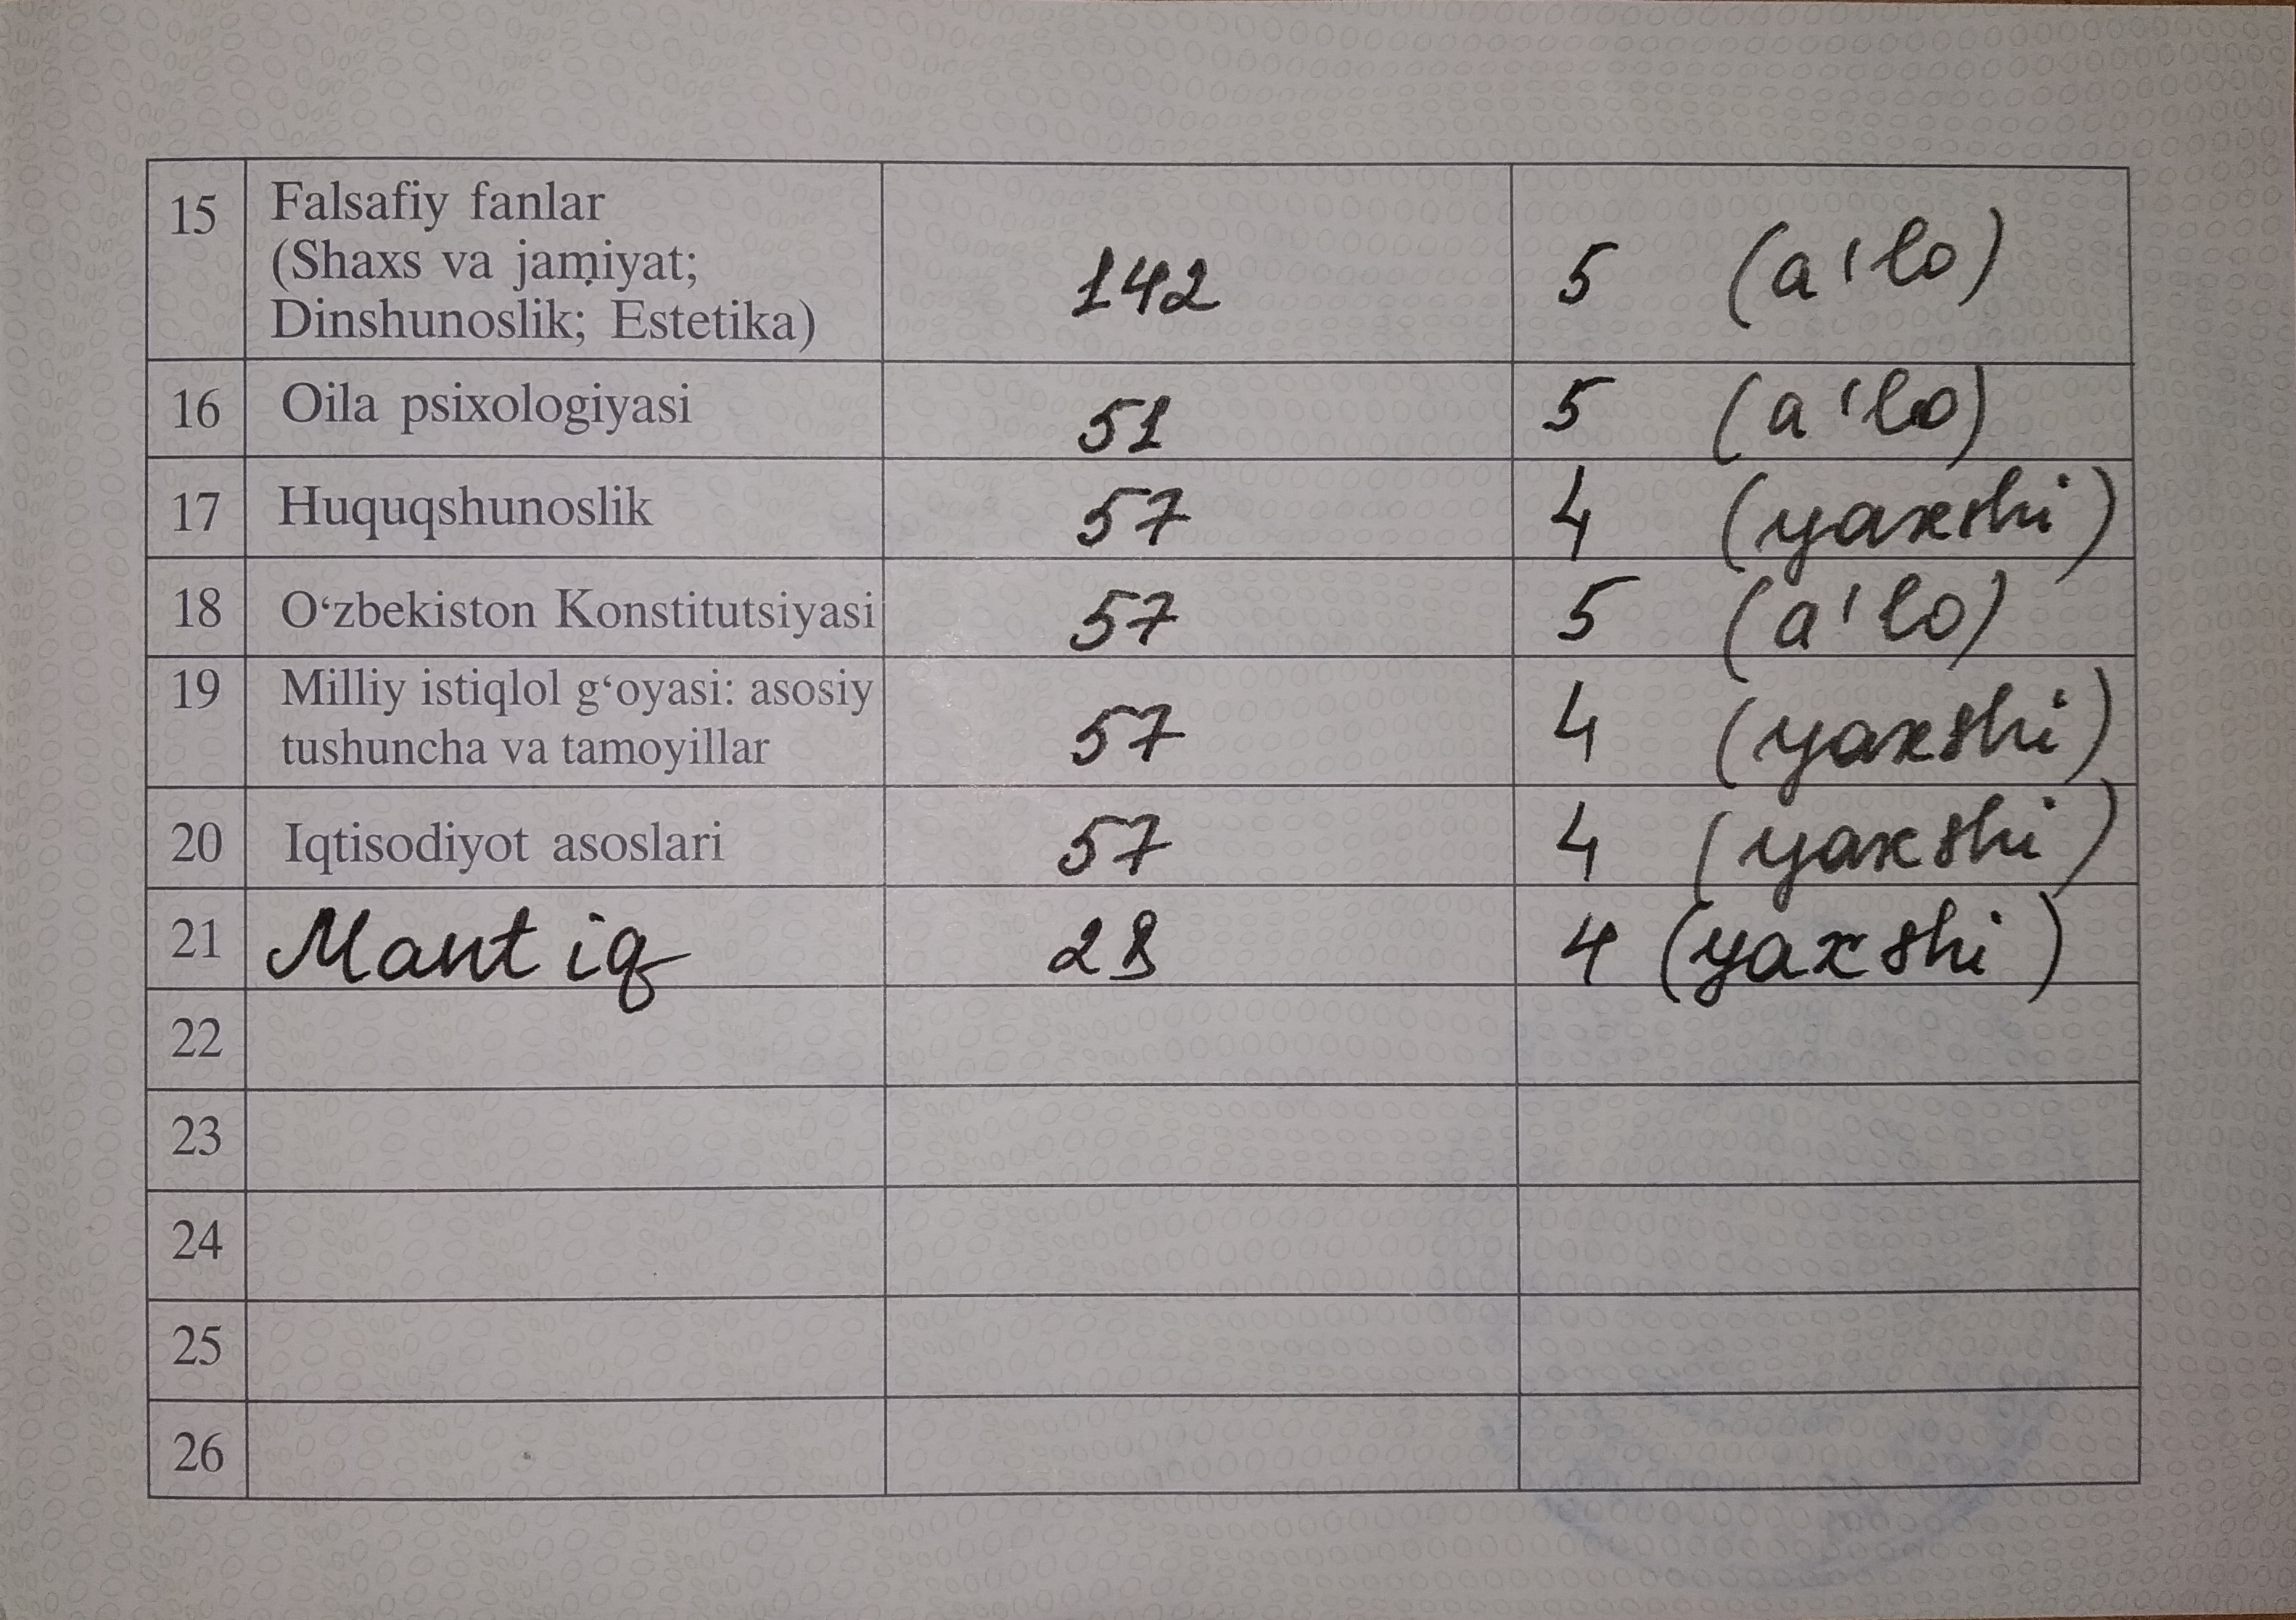 15 Falsafiy fanlar
(Shaxs va jamiyat;
Dinshunoslik; Estetika) 142 5 (a'lo)
16 Oila psixologiyasi 51 5 (a'lo)
17 Huquqshunoslik 57 4 (yaxshi)
18 O‘zbekiston Konstitutsiyasi 57 5 (a'lo)
19 Milliy istiqlol g‘oyasi: asosiy
tushuncha va tamoyillar 57 4 (yaxshi)
20 Iqtisodiyot asoslari 57 4 (yaxshi)
21 Mantiq 28 4 (yaxshi)
22
23
24
25
26